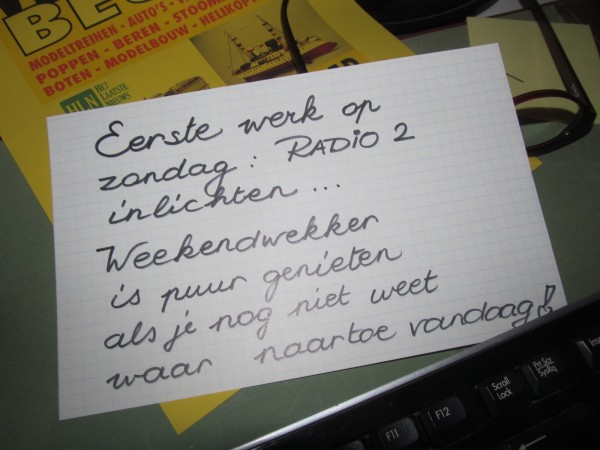 BE
MODELTREINEN - AUTO'S - V
POPPEN - BEREN - STOOM
BOTEN - MODELBOUW - HELIKOPT
HLN HET
LAATSTE
NIEUWS
Eerste werk op
zondag : RADIO 2
inlichten ...
Weekendwekker
is puur genieten
als je nog niet weet
waar naartoe vandaag!
F11
F12
Scroll
Lock
Prt Scr
SysRq
Inse